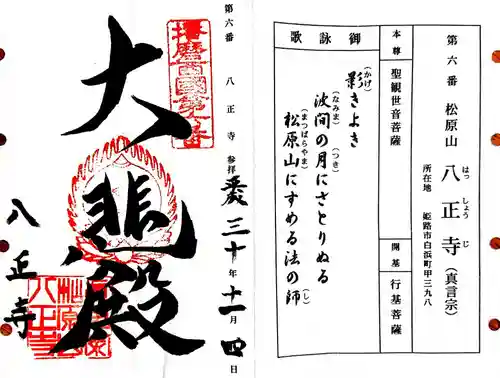 第六番 松原山 八正寺(真言宗)
はっしょうじ
所在地 姫路市白浜町甲三九八
本尊 聖観世音菩薩
開基 行基菩薩
御詠歌
影(かげ)きよき
波間(なみま)の月(つき)にさとりぬる
松原山(まつばらやま)にすめる法の師(し)
第六番 八正寺 参拝 平成三十年十一月四日
播磨西國第六番
大悲殿
八正寺